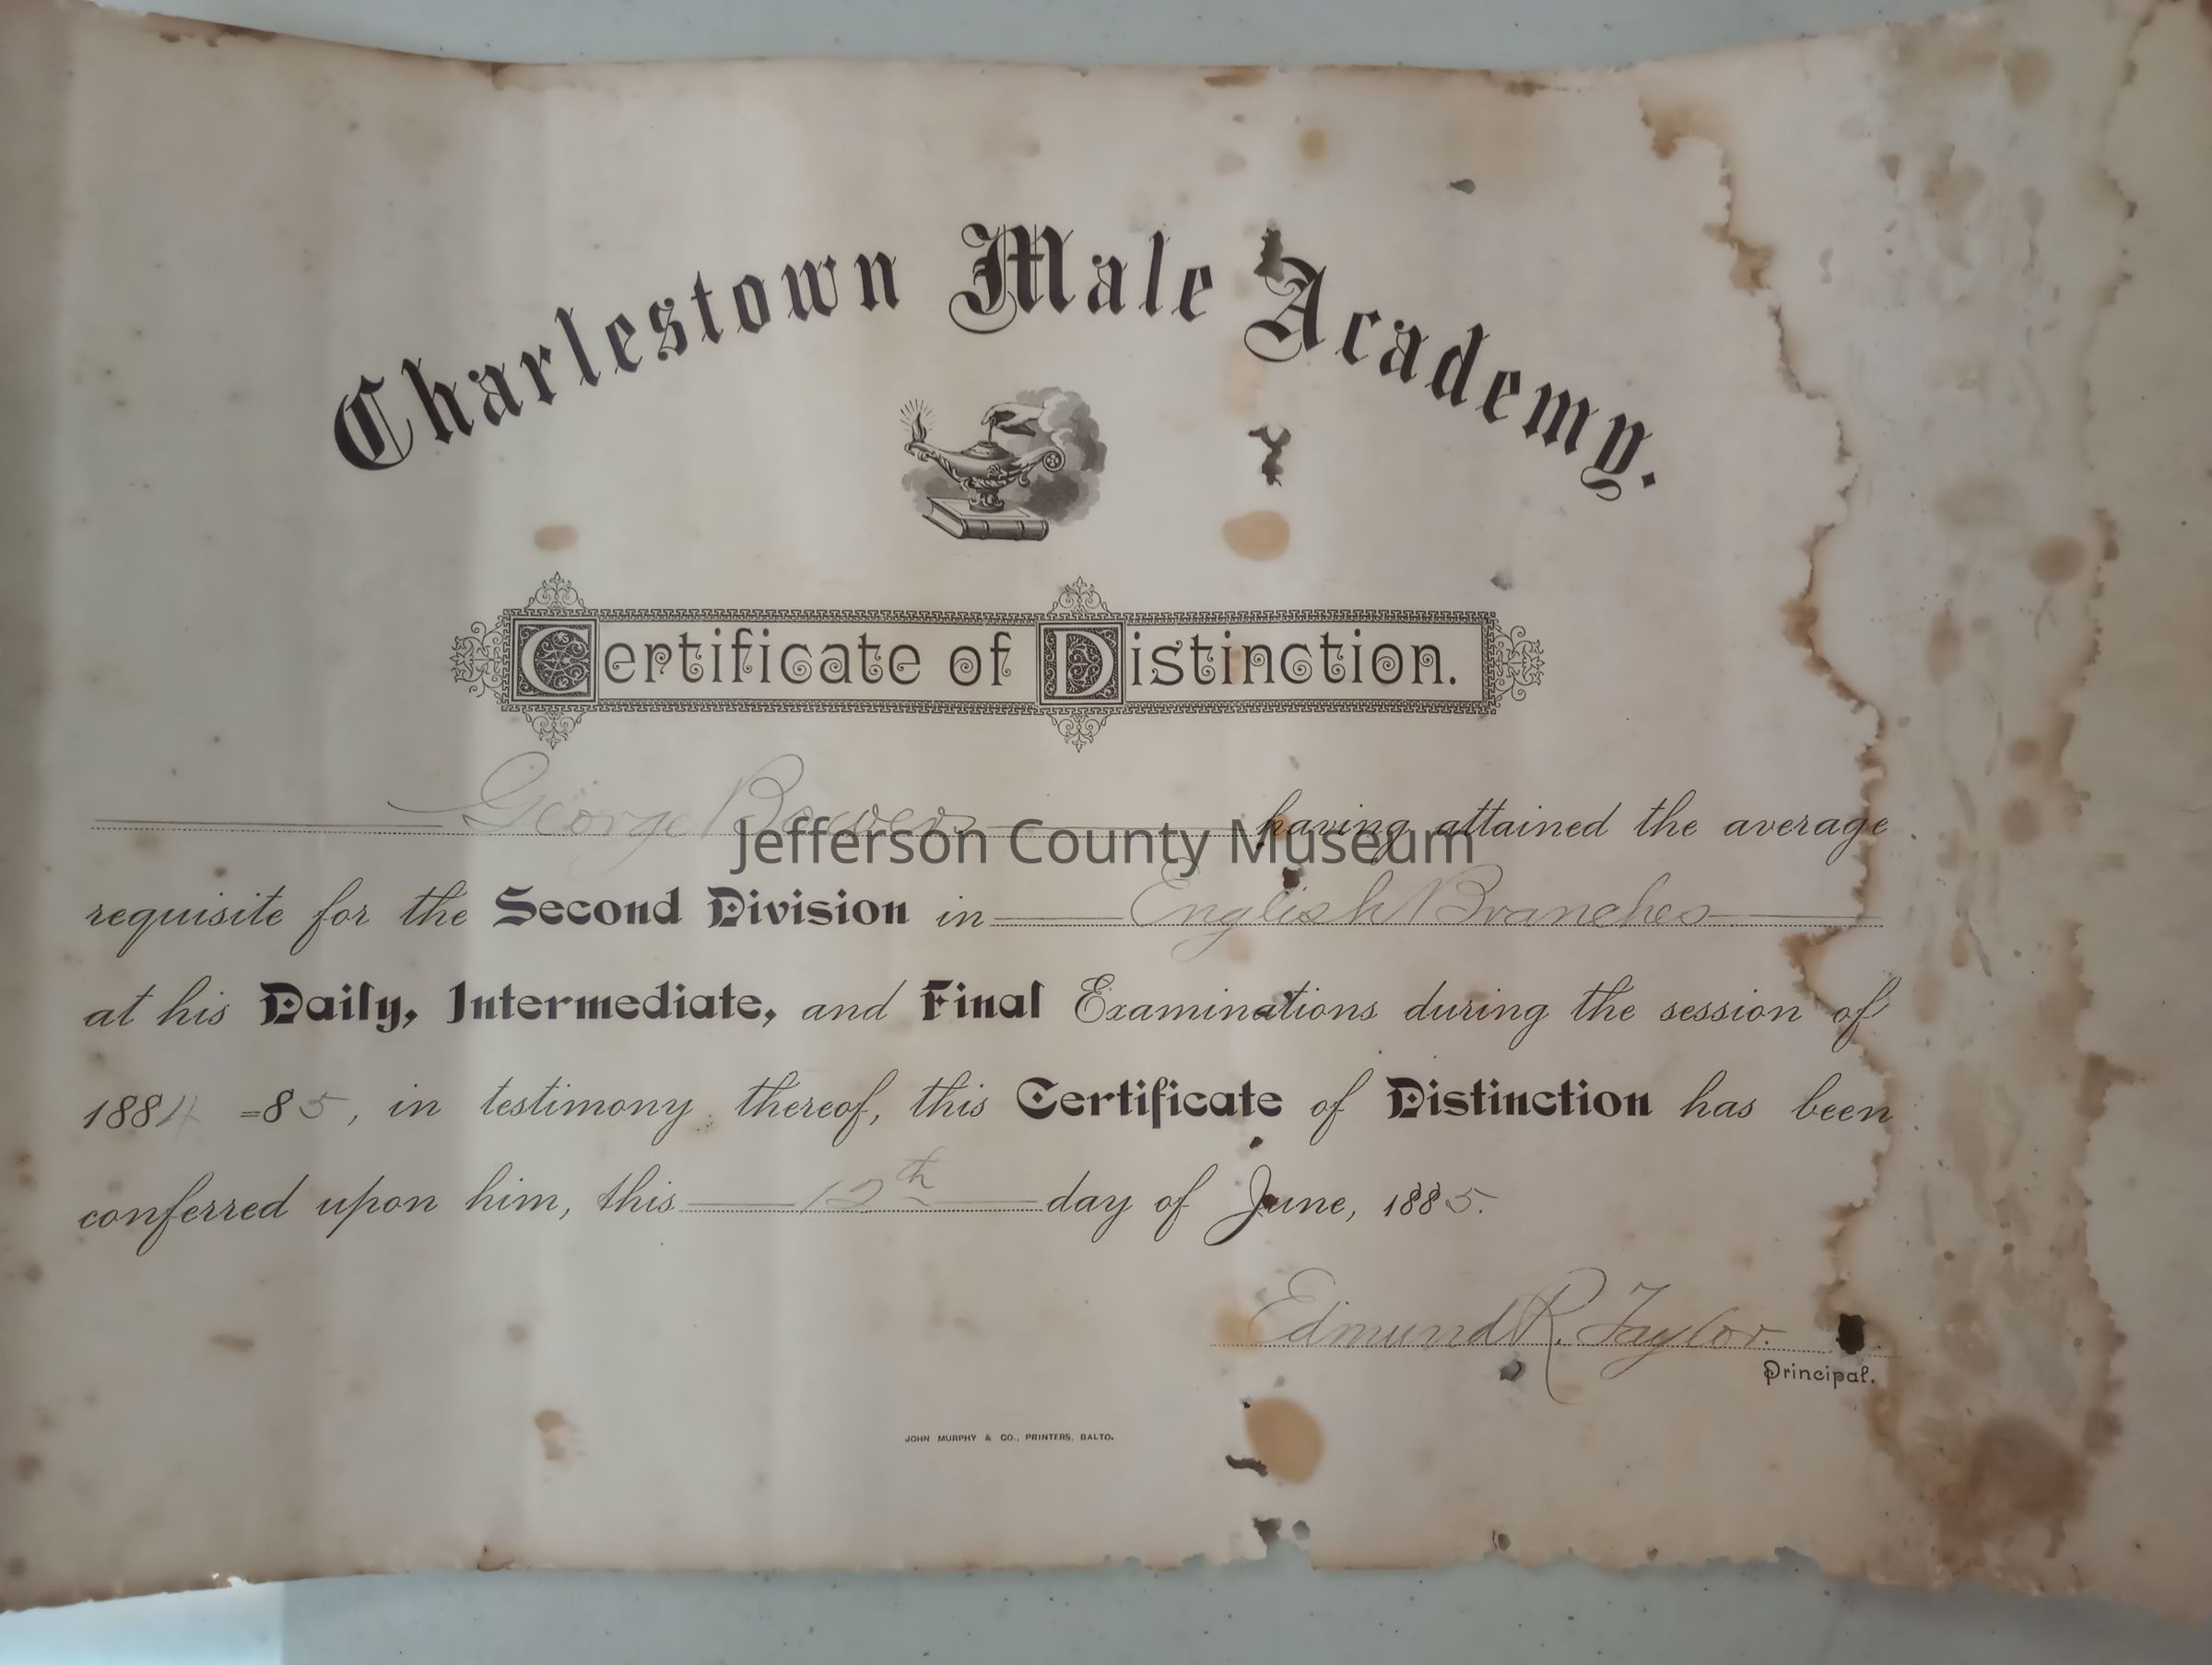 Charlestown Male Academy.
Certificate of Distinction.
George Bowers having attained the average
Jefferson County Museum
requisite for the Second Division in English Branches
at his Daily, Intermediate, and Final Examinations during the session of
1884 =85, in testimony thereof, this Certificate of Distinction has been
conferred upon him, this 12th day of June, 1885.
Edmund R. Taylor.
Principal.
JOHN MURPHY & CO., PRINTERS, BALTO.